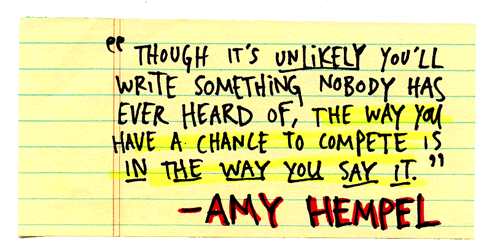 “THOUGH IT'S UNLIKELY YOU'LL
WRITE SOMETHING NOBODY HAS
EVER HEARD OF, THE WAY YOU
HAVE A CHANCE TO COMPETE IS
IN THE WAY YOU SAY IT.”
-AMY HEMPEL